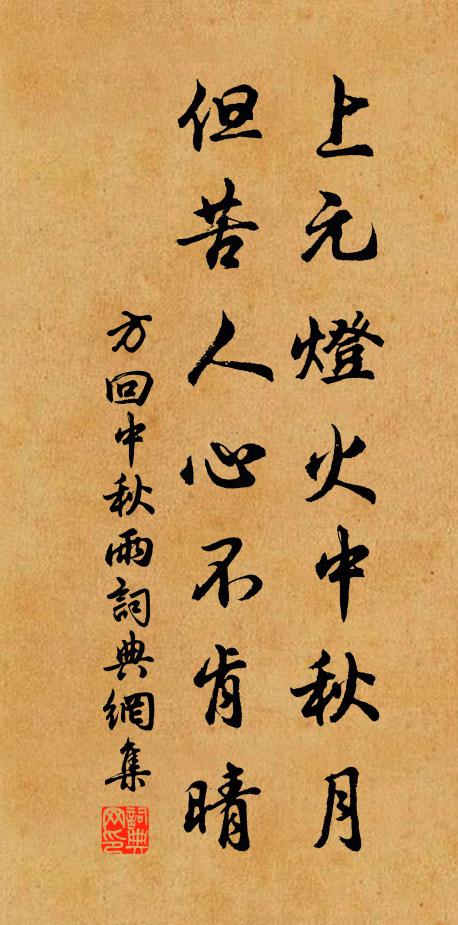 上元燈火中秋月
但苦人心不肯晴
方回中秋雨詞典網集
詞典网印